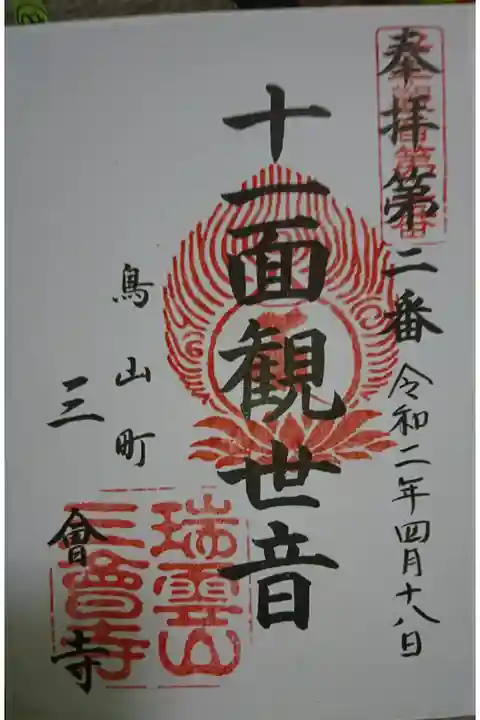 奉拝第二番
令和二年四月十八日
十一面観世音
鳥山町
三會寺
瑞雲山
三會寺